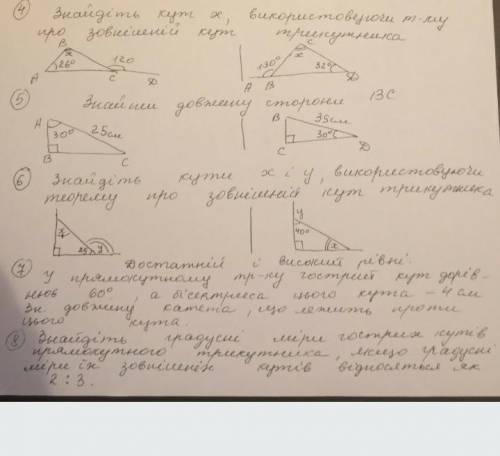 4 Знайдіть кут x, використовуючи т-му
про зовнішній кут трикутника
B x 120 A 26° C D
C x 130° 32° A B D
5 Знайти довжину сторони BC
A 30° 25см B C
B 35см 30° C D
6 Знайдіть кути x і y, використовуючи
теорему про зовнішній кут трикутника
x y
y 40° x
Достатній і високий рівні.
7 У прямокутному тр-ку гострий кут дорів-
нює 60°, а бісектриса цього кута - 4 см
Зн. довжину катета, що лежить проти
цього кута.
8 Знайдіть градусні міри гострих кутів
прямокутного трикутника, якщо градусні
міри їх зовнішніх кутів відносяться як
2 : 3.